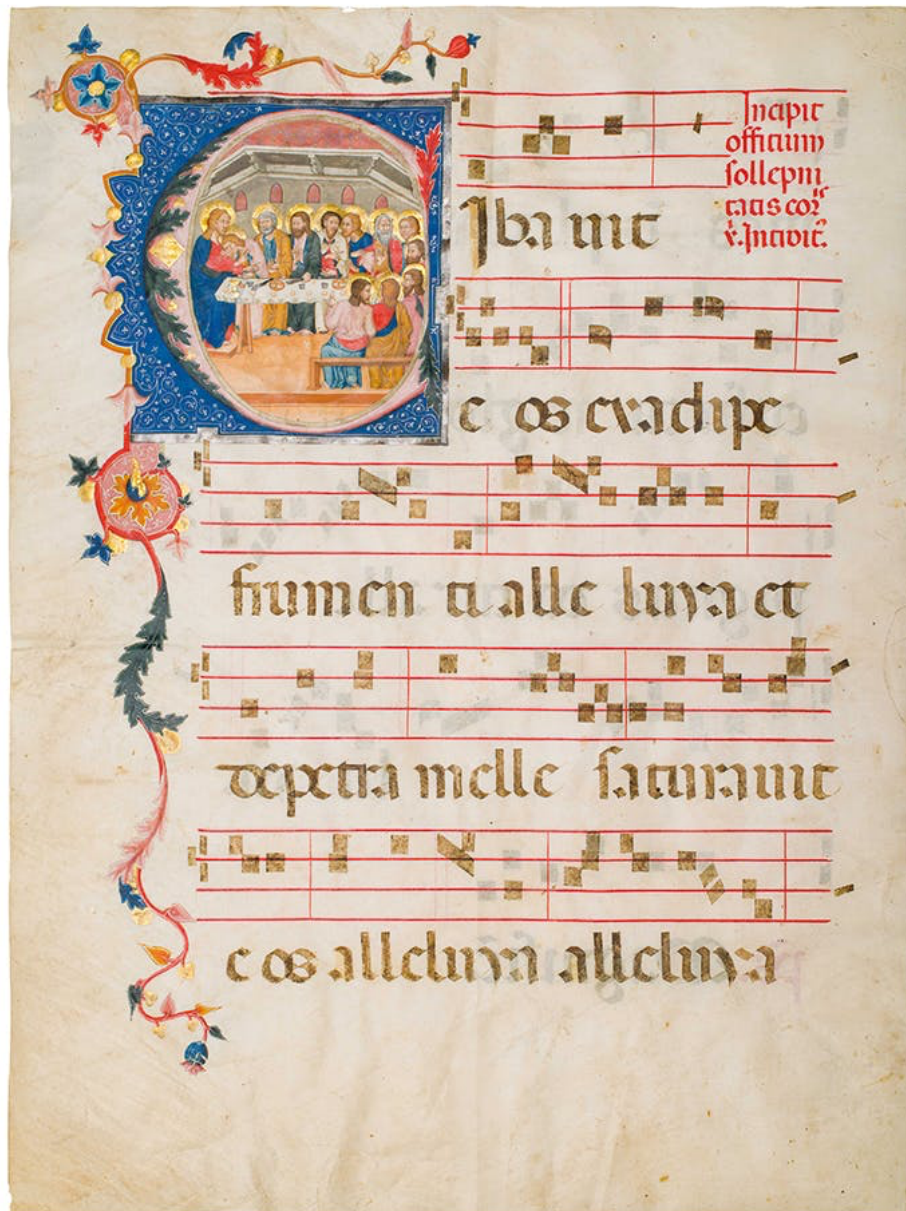 Incipit
officium
sollepni
tatis corꝰ
x̄. Introit̄.
CIba uit
e os exadipe
frumen ti alle luya et
depetra melle saturauit
e os alleluya alleluya